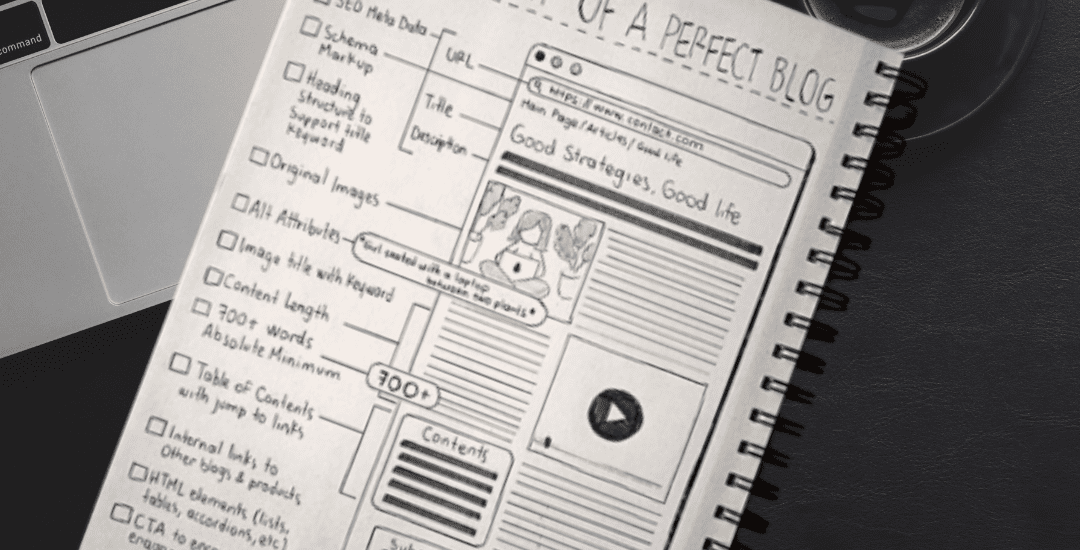 command
OF A PERFECT BLOG
SEO Meta Data
Schema
Markup
Heading
Structure to
Support title
Keyword
Original Images
Alt Attributes
Image title with Keyword
Content Length
700+ words
Absolute Minimum
Table of Contents
with jump to links
Internal links to
Other blogs & products
HTML elements (lists,
tables, accordions, etc)
CTA to
URL
Title
Description
https://www.contact.com
Main Page/Articles/Good life
Good Strategies, Good life
"Girl seated with a laptop
between two plants"
700+
Contents